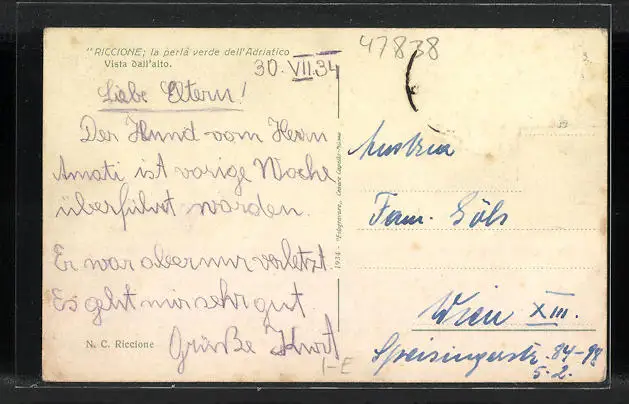 "RICCIONE; la perla verde dell'Adriatico
Vista dall'alto.
30.VII.34
Liebe Eltern!
Der Hund vom Herrn
Amati ist vorige Woche
überführt worden.
Er war aber nur verletzt.
Es geht mir sehr gut.
Grüße Kurt
N. C. Riccione
I-E
1934 - "Fotogravure, Cesare Capello - Milano
47838
Austria
Fam. Göls
Wien XIII.
Speisingerstr. 84-98
5.2.